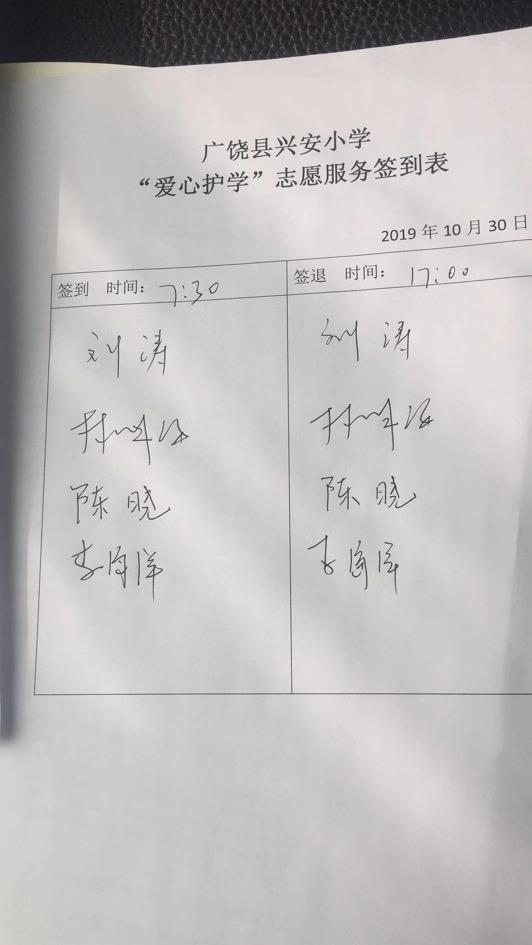 广饶县兴安小学
“爱心护学”志愿服务签到表
2019 年 10 月 30 日
签到 时间：7:30
签退 时间：17:00
刘 涛
刘 涛
陈 晓
陈 晓
李海洋
李海洋